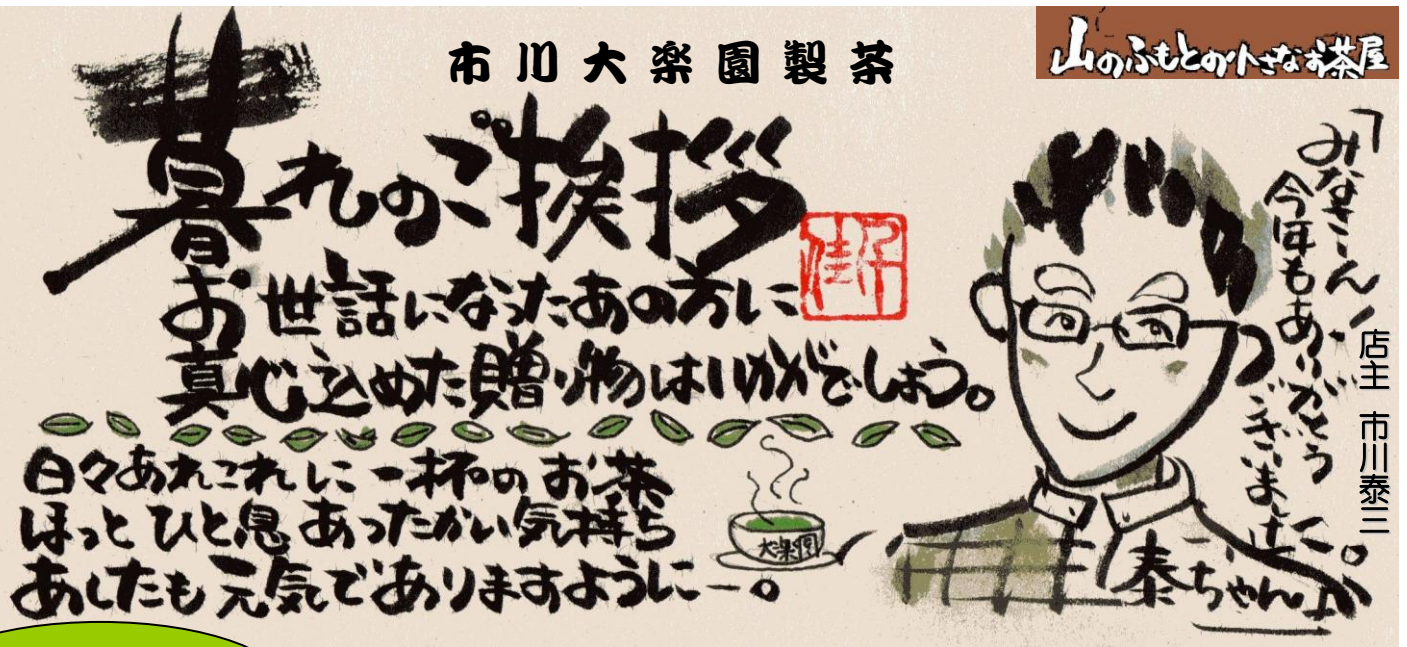 市川大楽園製茶
山のふもとの小さなお茶屋
暮れのご挨拶
お世話になったあの方に
真心込めた贈り物はいかがでしょう。
日々あれこれに一杯のお茶
ほっとひと息あったかい気持ち
あしたも元気でありますようにー。
大楽園
「みなさん
今年もありがとう
ございました。
泰ちゃん」
店主 市川泰三